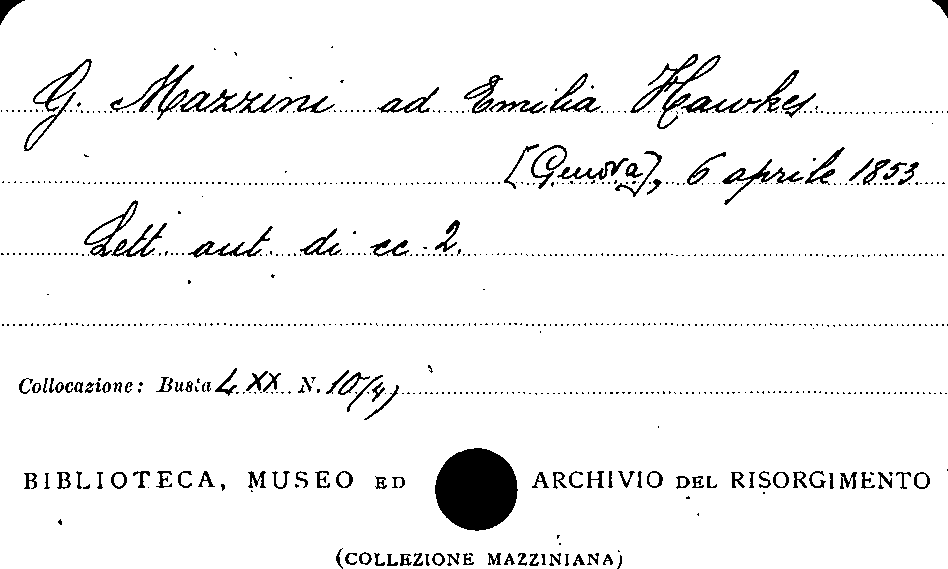 G. Mazzini ad Emilia Hawkes.
[Genova], 6 aprile 1853.
Lett. aut. di cc. 2.
Collocazione: Busta LXX N. 10/4)
BIBLIOTECA, MUSEO ED ARCHIVIO DEL RISORGIMENTO
(COLLEZIONE MAZZINIANA)